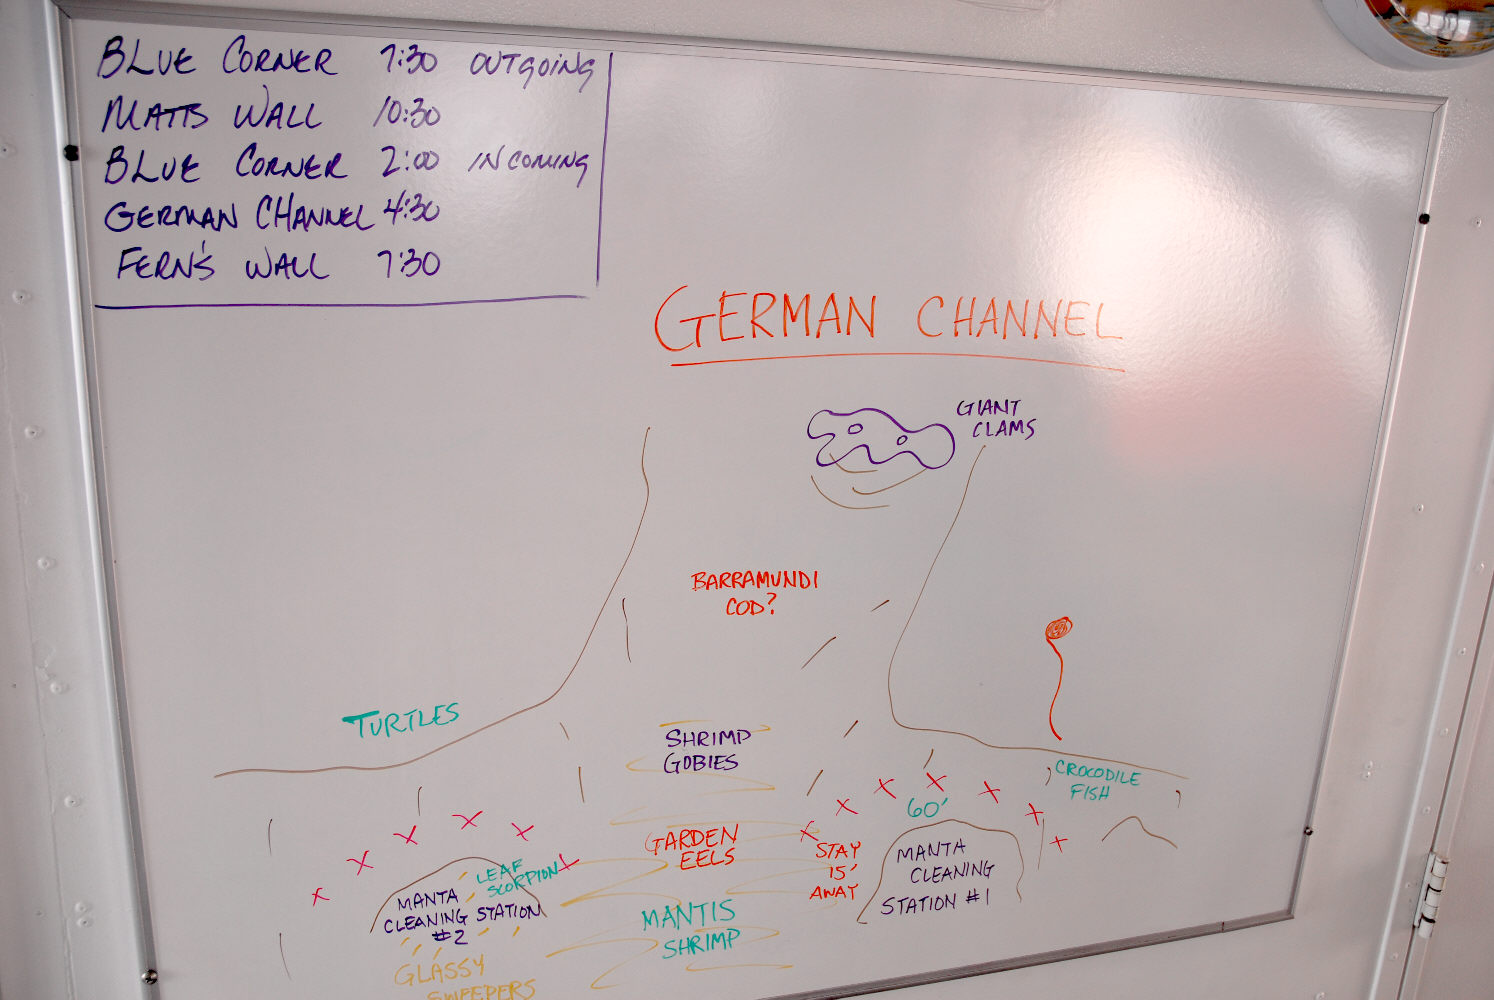 BLUE CORNER 7:30 OUTGOING
MATTS WALL 10:30
BLUE CORNER 2:00 INCOMING
GERMAN CHANNEL 4:30
FERN'S WALL 7:30
GERMAN CHANNEL
GIANT
CLAMS
BARRAMUNDI
COD?
TURTLES
SHRIMP
GOBIES
CROCODILE
FISH
60'
GARDEN
EELS
STAY
15'
AWAY
MANTA
CLEANING
STATION #1
LEAF
SCORPION
MANTA
CLEANING STATION
#2
MANTIS
SHRIMP
GLASSY
SWEEPERS